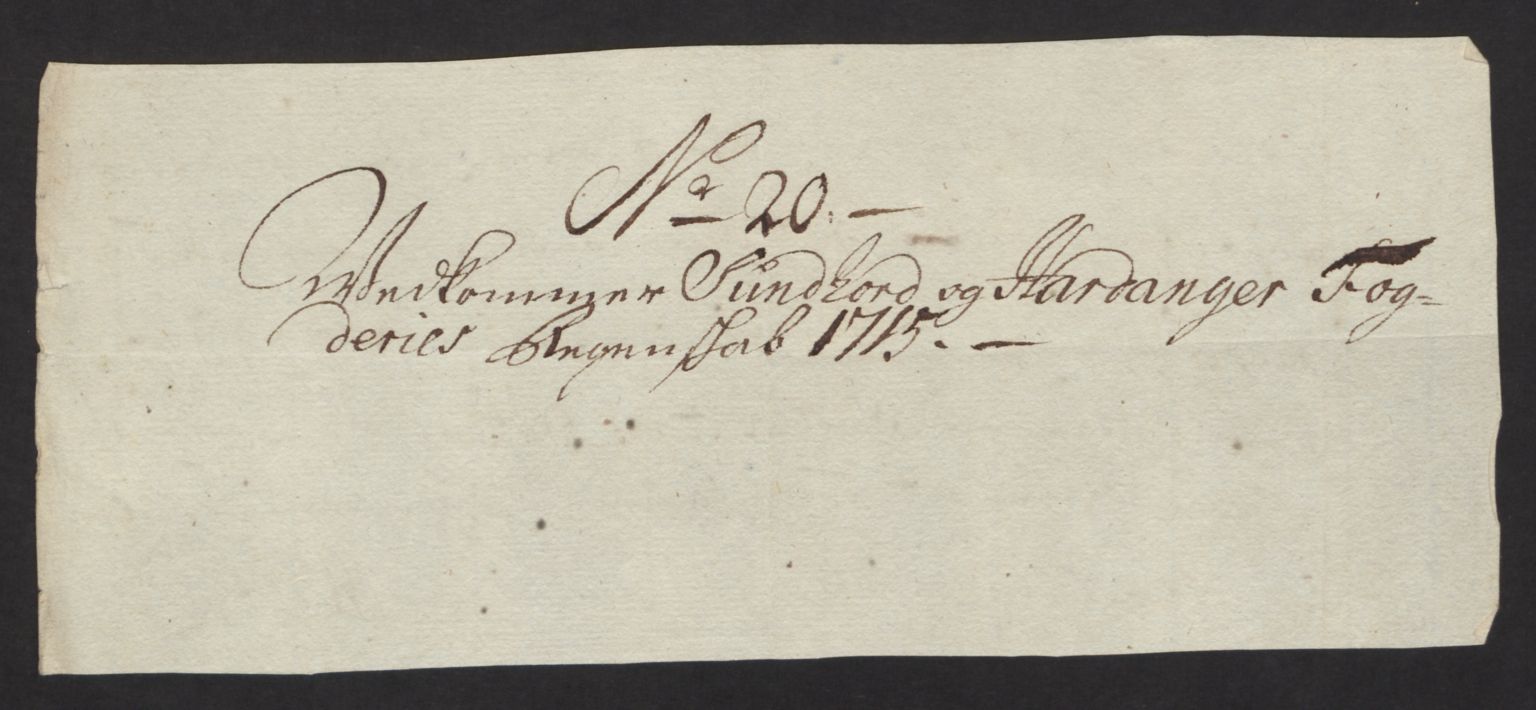 No 20. —
Wedkommer Sundhord og Hardanger Fog=
deries Regenskab 1715. —